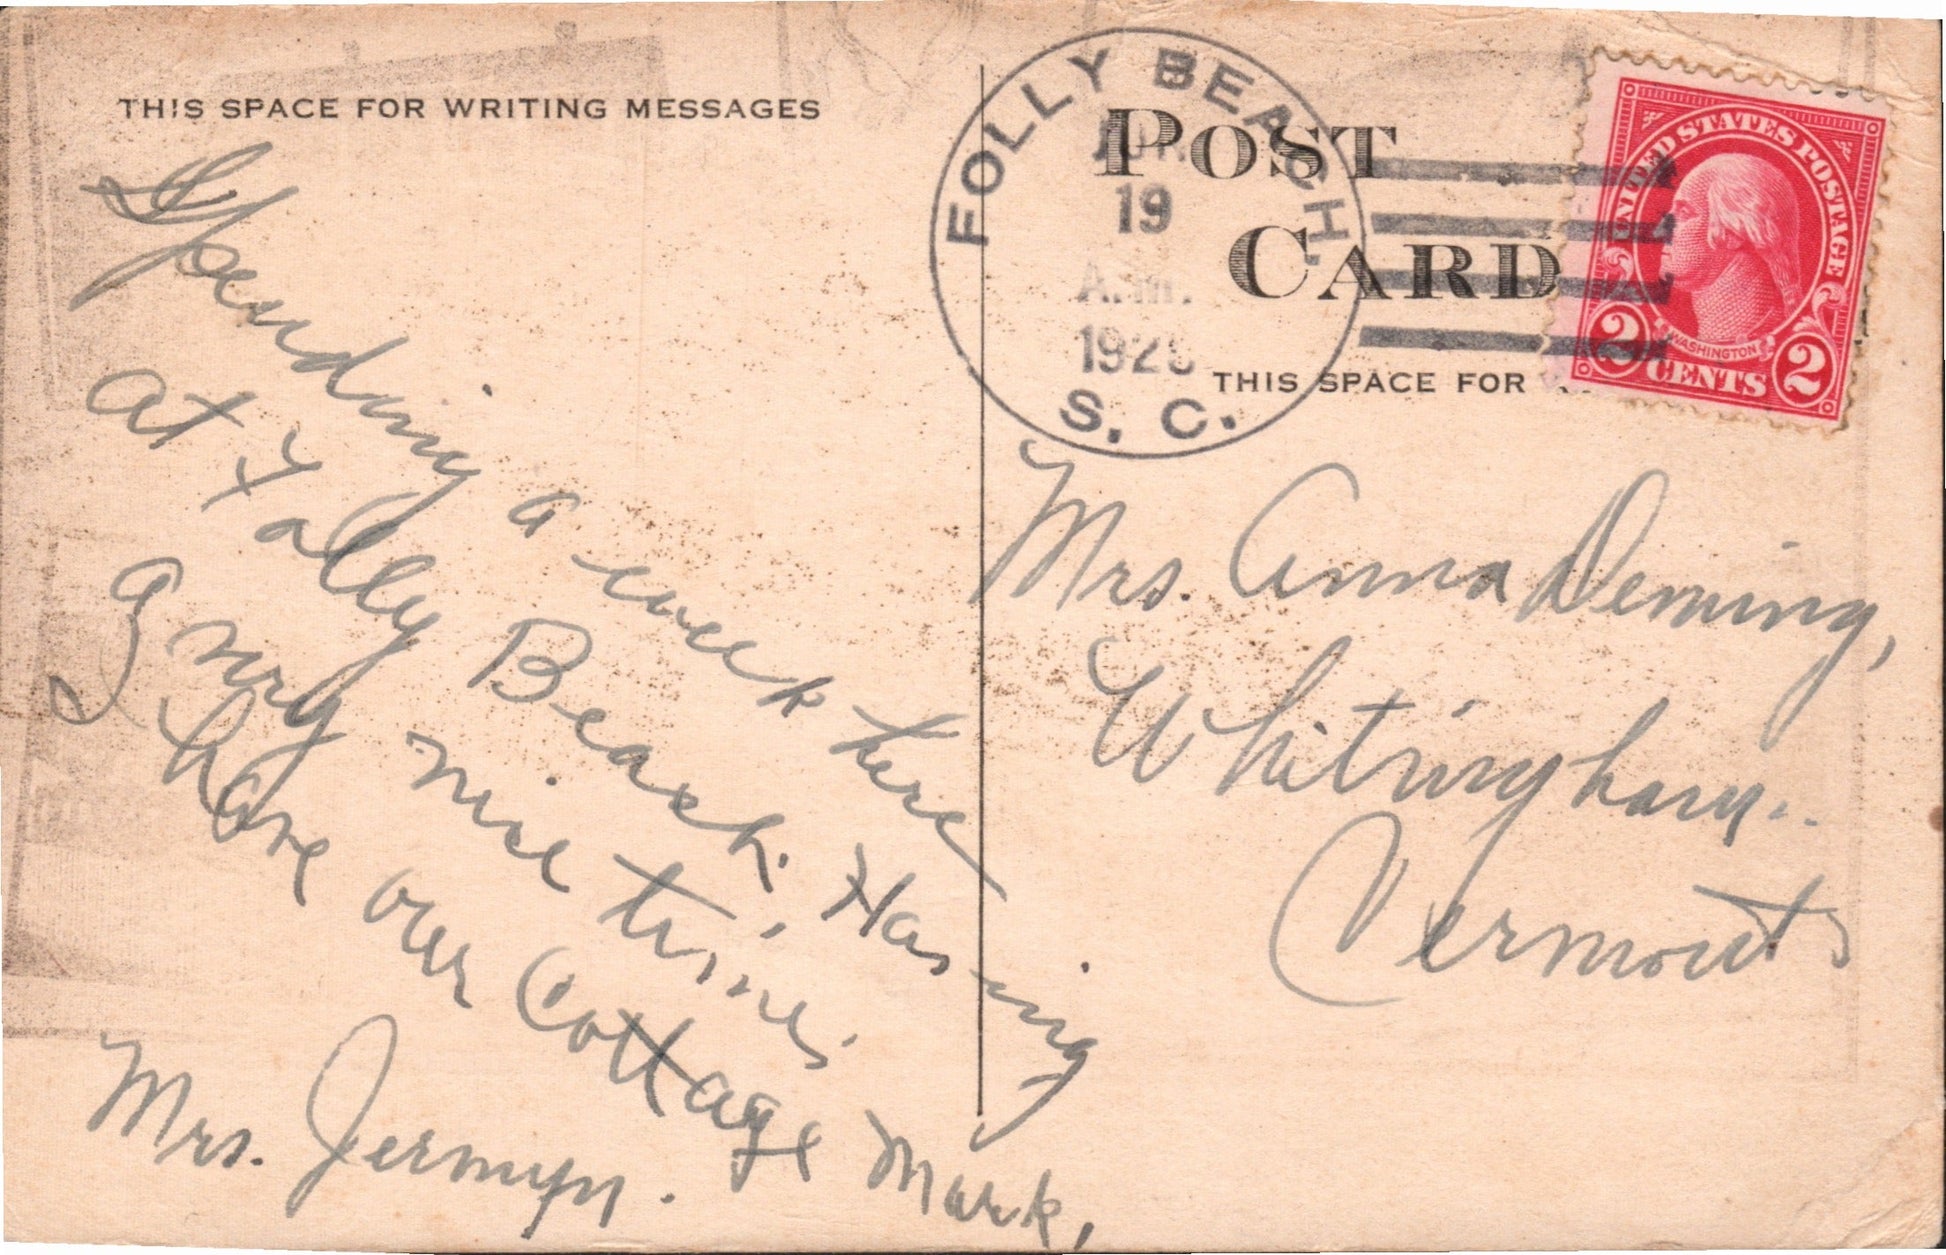 THIS SPACE FOR WRITING MESSAGES
Spending a week here
at Folly Beach. Having
a very nice time.
I have our Cottage Mark,
Mrs. Jermyn.
FOLLY BEACH.
19
A.M.
S. C.
POST
CARD
THIS SPACE FOR
UNITED STATES POSTAGE
WASHINGTON
2 CENTS 2
Mrs. Anna Deming,
Whitingham..
Vermont